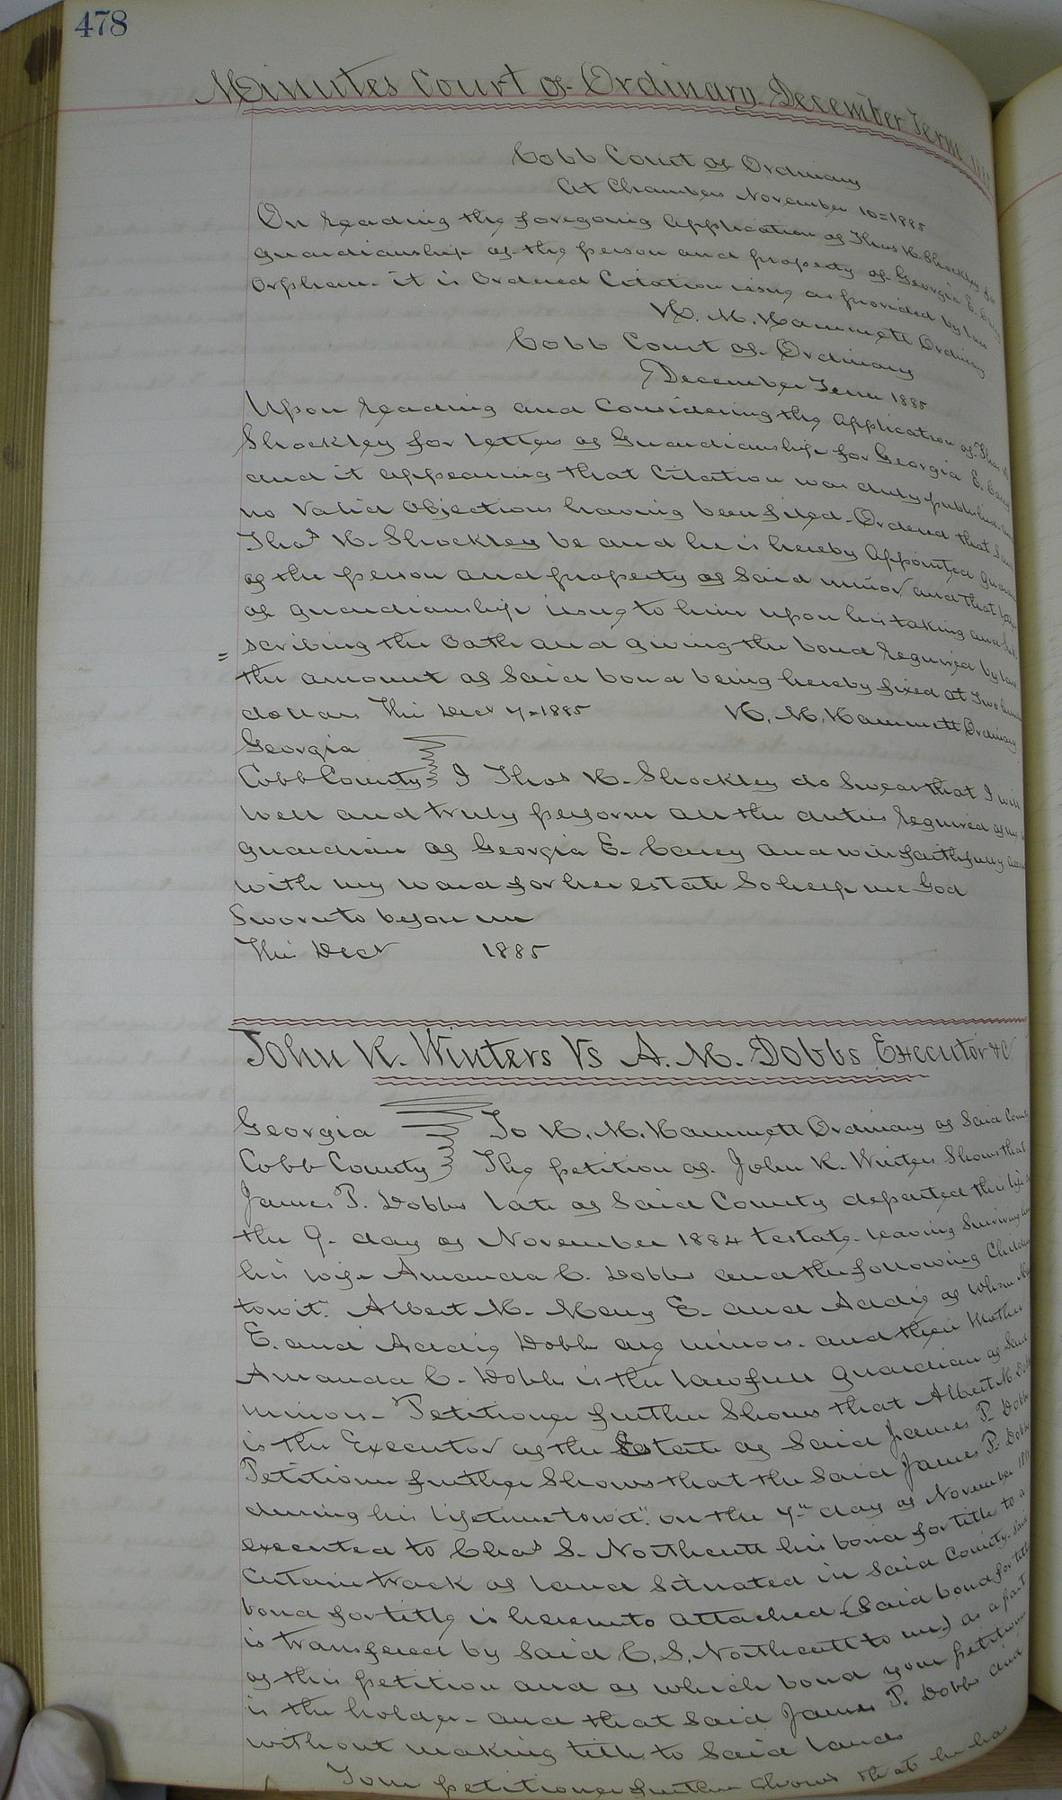 478
Minutes Court of Ordinary December Term
Cobb Court of Ordinary
At Chambers November 10=1885
On reading the foregoing Application of Thos H. Shockley for
guardianship of the person and property of Georgia E.
Orphan. it is Ordered Citation issue as provided by law
H. M. Hammett Ordinary
Cobb Court of Ordinary
December Term 1885
Upon reading and Considering the Application of Thos H.
Shockley for letters of Guardianship for Georgia E.
and it appearing that Citation was duly published and
no Valid Objections having been filed. Ordered that Said
Thos H. Shockley be and he is hereby Appointed
of the person and property of Said minor and that
of guardianship issue to him upon his taking and Sub
= scribing the Oath and giving the bond required by law
the amount of Said bond being hereby fixed at Two
dollars This Decr 7=1885 H. M. Hammett Ordinary
Georgia
Cobb County I Thos H. Shockley do Swear that I will
well and truly perform all the duties required of me
guardian of Georgia E. Caney and will faithfully
with my ward for her estate So help me God
Sworn to before me
This Decr 1885
John R. Winters Vs A. M. Dobbs Executor &c
Georgia To H. M. Hammett Ordinary of Said County
Cobb County The petition of John R. Winters Shows that
James P. Dobbs late of Said County departed this life
the 9. day of November 1884 testate. leaving Surviving
his wife Amanda C. Dobbs and the following Children
towit: Albert M. Mary E. and Addie of whom
E. and Addie Dobbs are minors. and their Mother
Amanda C. Dobbs is the lawfull guardian of Said
minors. Petitioner further Shows that Albert M.
is the Executor of the Estate of Said James P. Dobbs
Petitioner further Shows that the Said James P. Dobbs
during his lifetime towit: on the 7th day of November
executed to Chas S. Northcutt his bond for title to a
Certain track of land Situated in Said County. Said
bond for title is hereunto attached (Said bond for title
is transfered by Said C. S. Northcutt to me) as a part
of this petition and of which bond your petitioner
is the holder. and that Said James P. Dobbs
without making title to Said lands
Your petitioner further Shows that he has